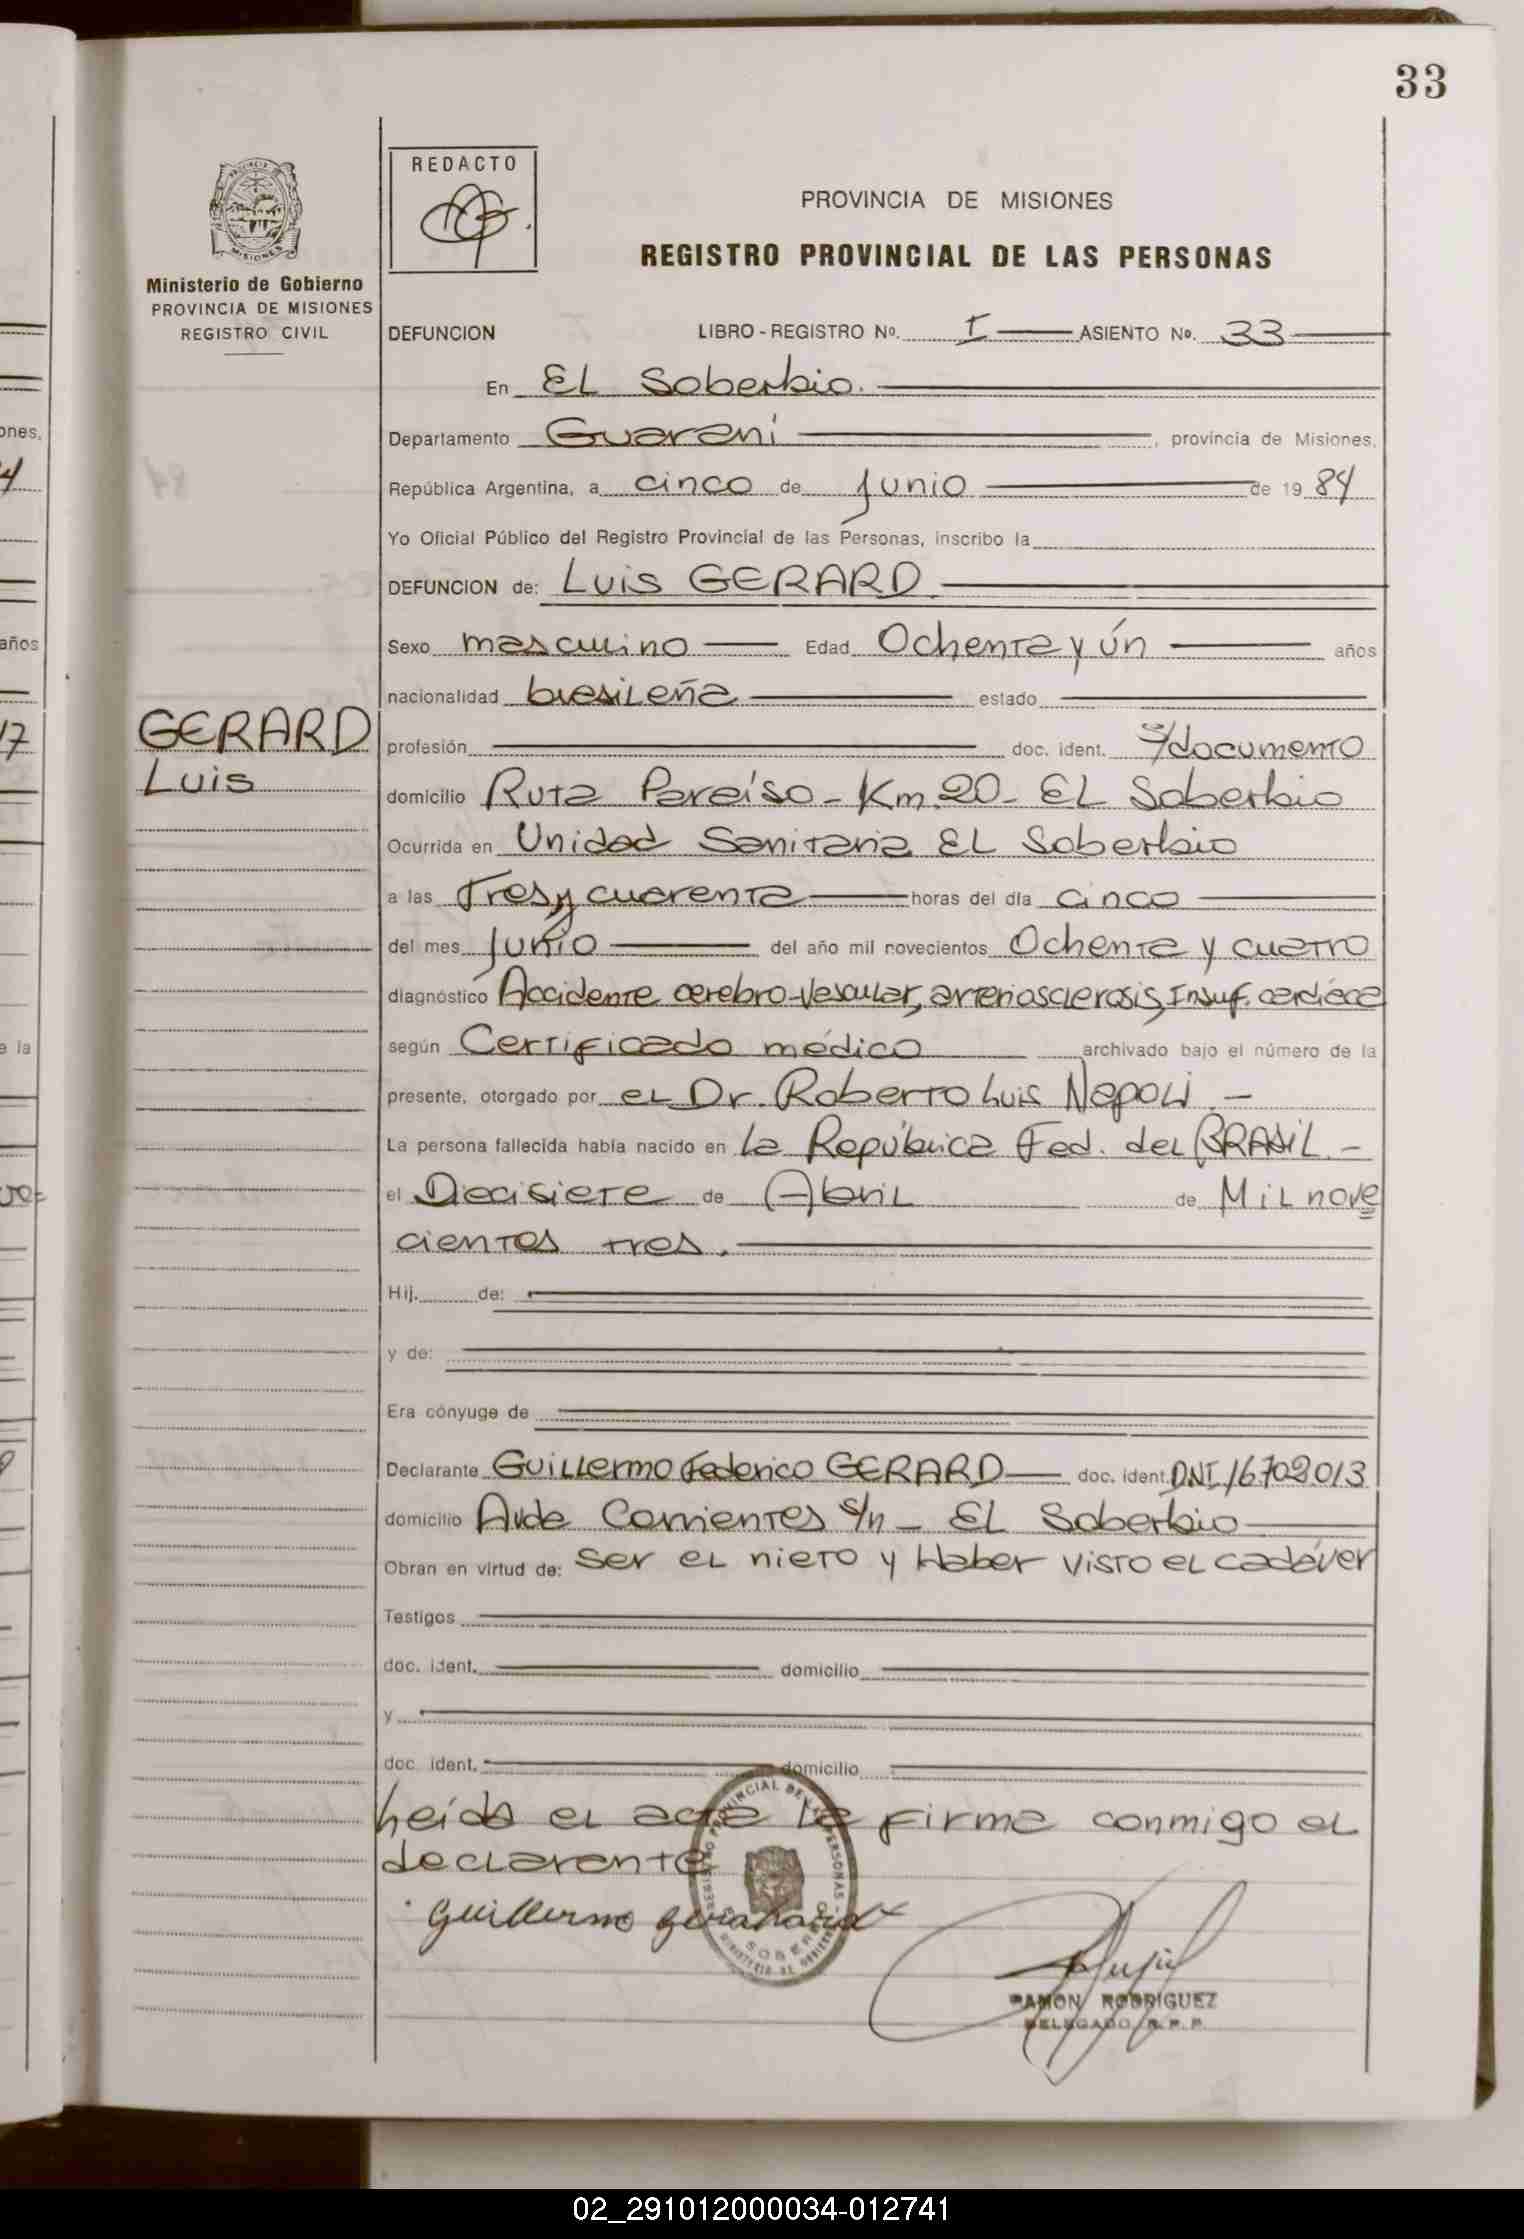 33
REDACTO
PROVINCIA DE MISIONES
REGISTRO PROVINCIAL DE LAS PERSONAS
Ministerio de Gobierno
PROVINCIA DE MISIONES
REGISTRO CIVIL
DEFUNCION LIBRO - REGISTRO Nº. I ASIENTO Nº. 33
En EL Soberbio.
Departamento Guaraní, provincia de Misiones,
República Argentina, a cinco de junio de 19 84
Yo Oficial Público del Registro Provincial de las Personas, inscribo la
DEFUNCION de: Luis GERARD
Sexo masculino Edad Ochenta y ún años
nacionalidad brasileña estado
GERARD
Luis
profesión doc. ident. s/documento
domicilio Ruta Paraíso - Km. 20 - EL Soberbio
Ocurrida en Unidad Sanitaria EL Soberbio
a las Tres y cuarenta horas del día cinco
del mes junio del año mil novecientos Ochenta y cuatro
diagnóstico Accidente cerebro-vascular, arteriosclerosis, Insuf. cardíaca
según Certificado médico archivado bajo el número de la
presente, otorgado por eL Dr. Roberto Luis Napoli. -
La persona fallecida había nacido en la República Fed. del BRASIL. -
el Diecisiete de Abril de Mil nove
cientos tres.
Hij. de:
y de:
Era cónyuge de
Declarante Guillermo Federico GERARD doc. ident. DNI 16.702.013
domicilio Avda Corrientes s/n - EL Soberbio
Obran en virtud de: ser el nieto y Haber visto el cadáver
Testigos
doc. ident. domicilio
y
doc. ident. domicilio
Leída el acta la firma conmigo el
declarante
REGISTRO PROVINCIAL DE LAS PERSONAS
MINISTERIO DE GOBIERNO
Guillermo
RAMON RODRIGUEZ
DELEGADO R.P.P.
02_291012000034-012741